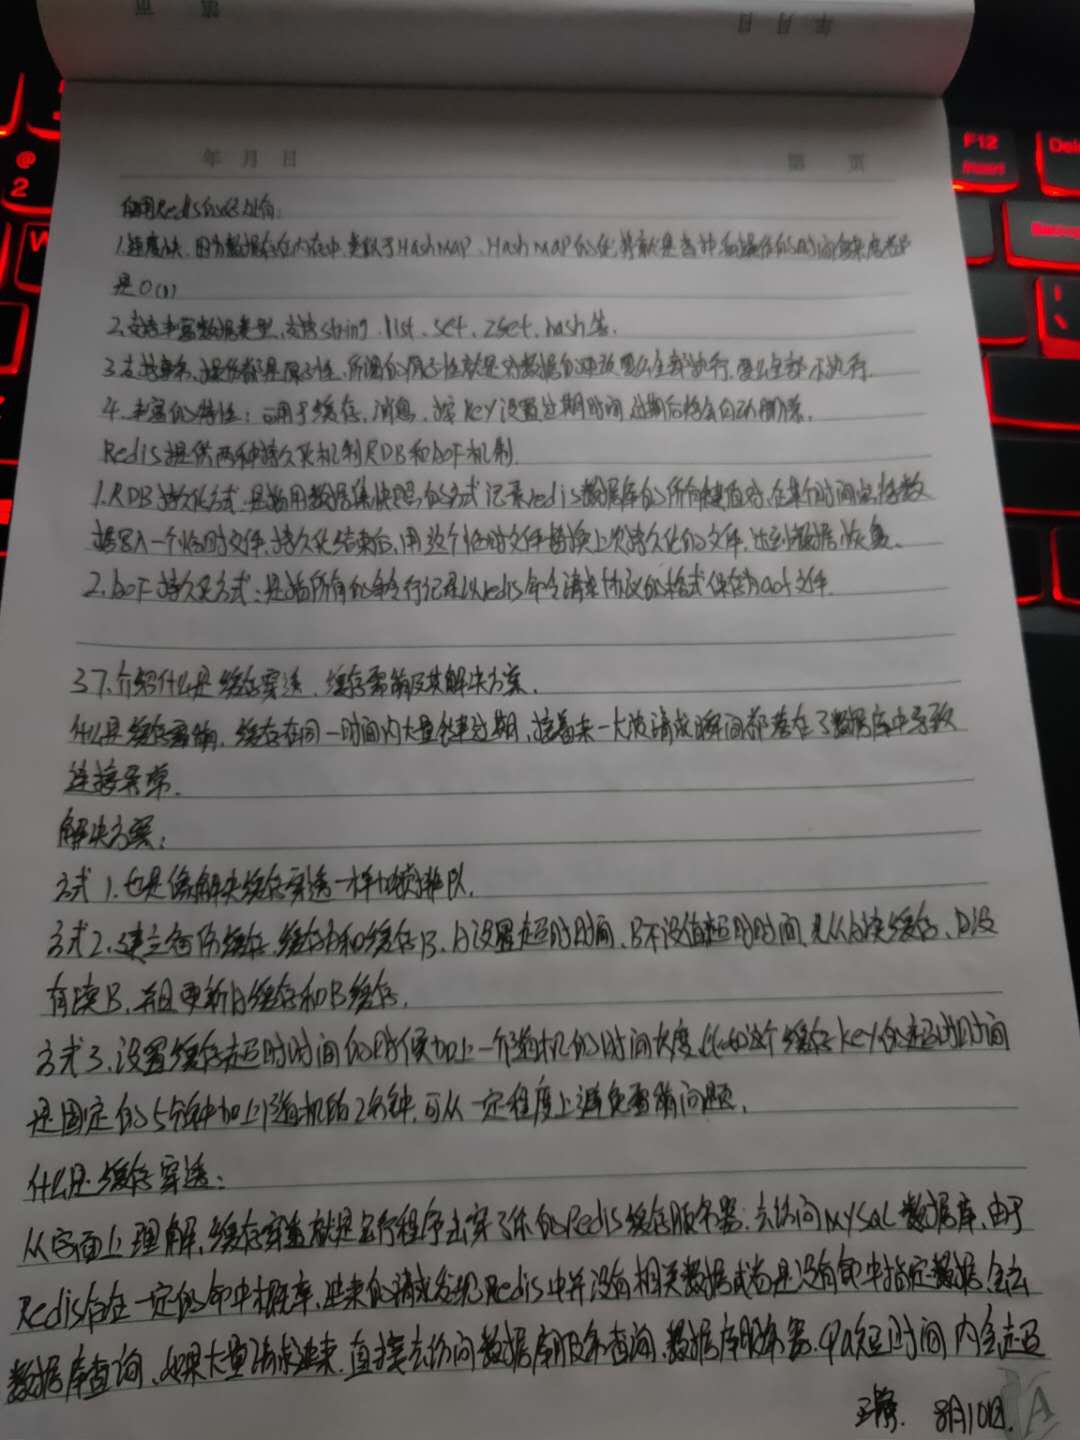 第 页
年 月 日
年 月 日
第 页
使用Redis的好处有:
1.速度快,因为数据存在内存中,类似于HashMap、HashMap的优势就是查找和操作的时间复杂度都
是O(1)
2.支持丰富数据类型,支持string、list、set、Zset、hash等.
3.支持事务,操作都是原子性,所谓的原子性就是对数据的更改要么全部执行,要么全部不执行.
4.丰富的特性:可用于缓存,消息,按key设置过期时间,过期后将会自动删除.
Redis提供两种持久化机制RDB和AOF机制.
1.RDB持久化方式:是指用数据集快照的方式记录redis数据库的所有键值对,在某个时间点将数
据写入一个临时文件,持久化结束后,用这个临时文件替换上次持久化的文件,达到数据恢复.
2.AOF持久化方式:是指所有的命令行记录以redis命令请求协议的格式保存为aof文件.
37.介绍什么是缓存穿透、缓存雪崩及其解决方案.
什么是缓存雪崩,缓存在同一时间内大量键过期,接着来一大波请求瞬间都落在了数据库中导致
连接异常.
解决方案:
方式1.也是像解决缓存穿透一样加锁排队.
方式2.建立备份缓存,缓存A和缓存B,A设置超时时间,B不设值超时时间,先从A读缓存,A没
有读B,并且更新A缓存和B缓存.
方式3.设置缓存超时时间的时候加上一个随机的时间长度,比如这个缓存key的超时时间
是固定的5分钟加上随机的2分钟,可从一定程度上避免雪崩问题.
什么是缓存穿透:
从字面上理解,缓存穿透就是运行程序击穿了你的Redis缓存服务器,去访问MYSQL数据库,由于
Redis存在一定的命中概率,进来的请求发现Redis中并没有相关数据或者是没有命中指定数据,会去
数据库查询,如果大量请求进来,直接去访问数据库服务查询,数据库服务器,由短时间内会超
8月10日
A